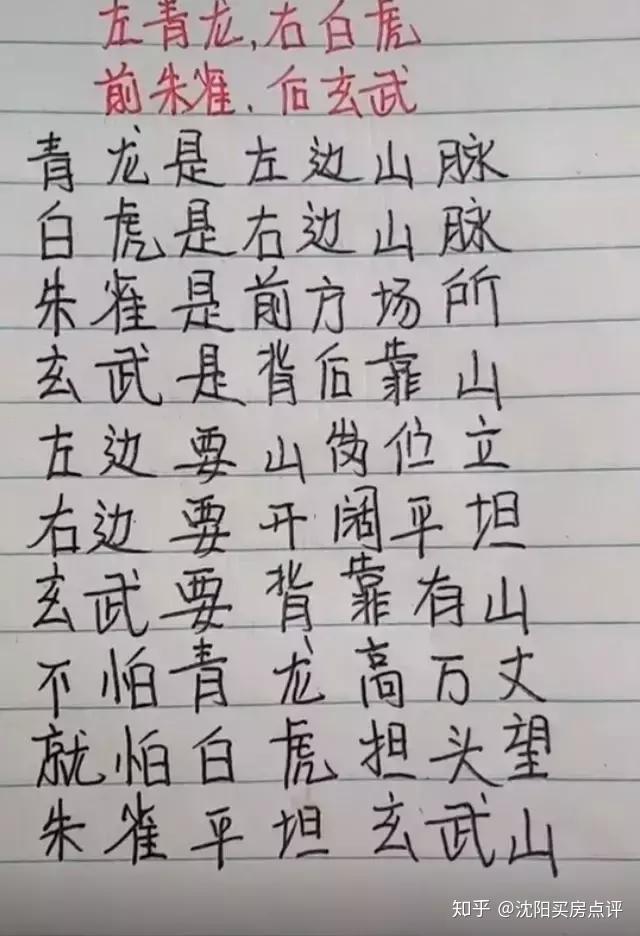 左青龙,右白虎
前朱雀.后玄武
青龙是左边山脉
白虎是右边山脉
朱雀是前方场所
玄武是背后靠山
左边要山岗位立
右边要开阔平坦
玄武要背靠有山
不怕青龙高万丈
就怕白虎担头望
朱雀平坦玄武山
知乎 @沈阳买房点评